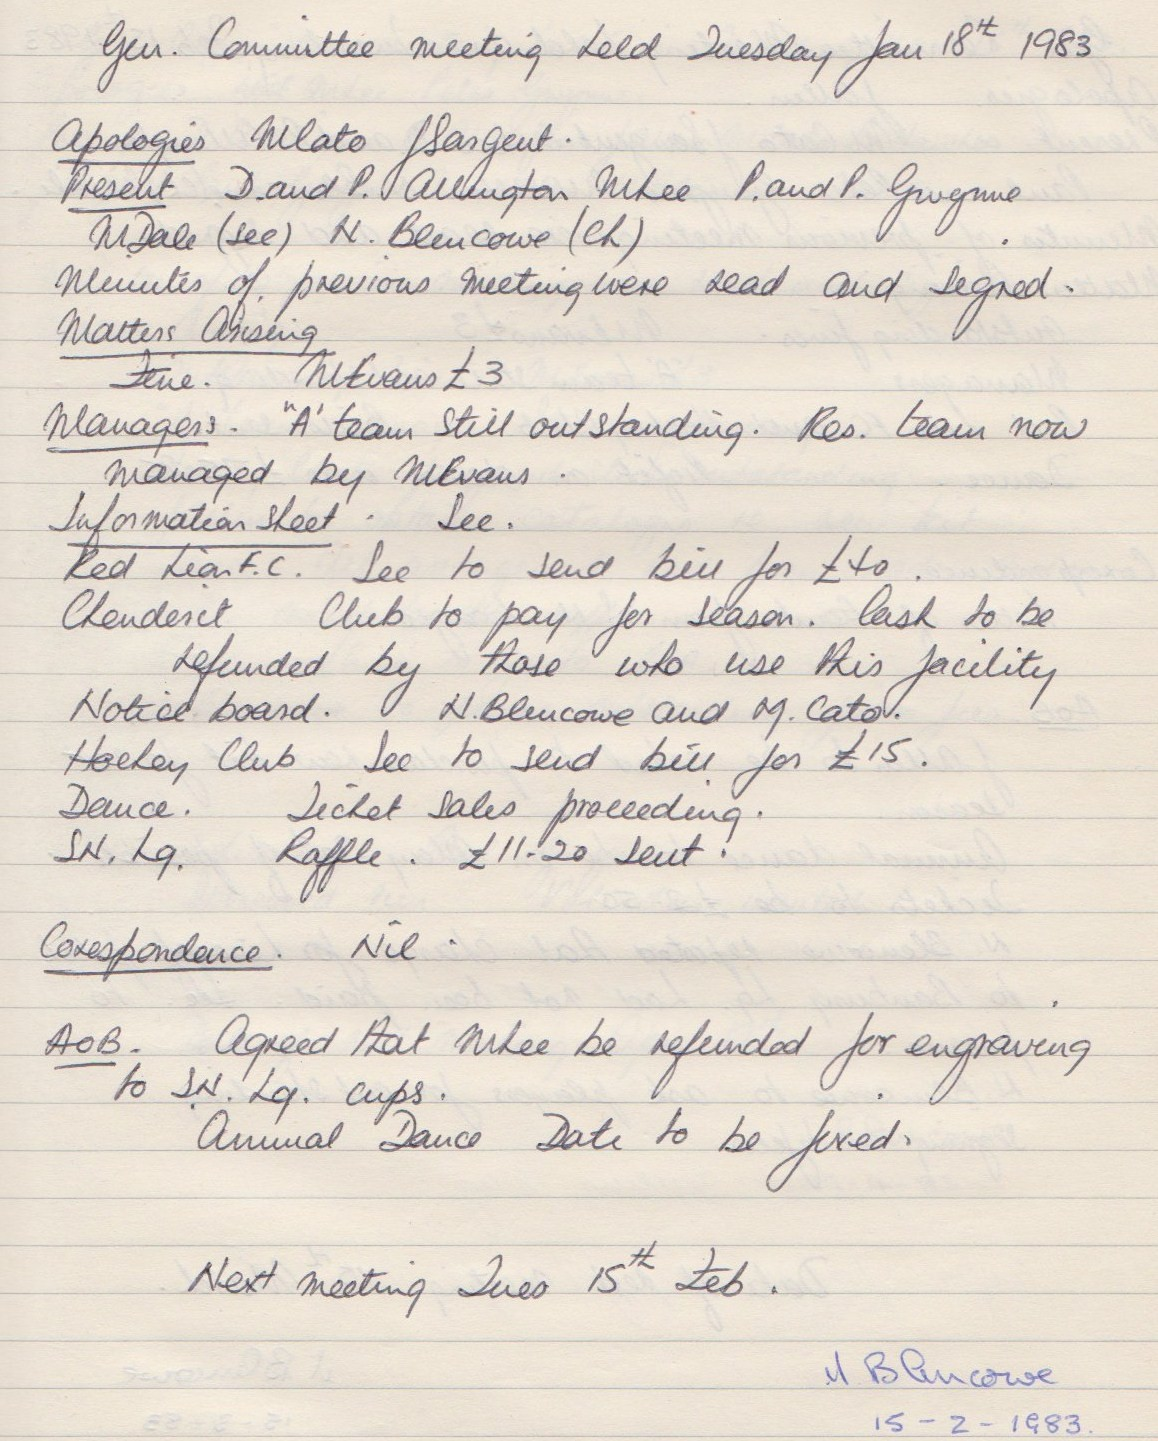 Gen. Committee meeting held Tuesday Jan 18th 1983
Apologies M Cato J Sargent.
Present D. and P. Allington M Lee P. and P. Gwynne
M Dale (sec) N. Blencowe (Ch)
Minutes of previous meeting were read and signed.
Matters Arising
Fine. M Evans £3
Managers. "A' team still outstanding. Res. team now
managed by M Evans.
Information sheet. Sec.
Red Lion F.C. Sec to send bill for £40.
Chenderit Club to pay for season. Cash to be
refunded by those who use this facility
Notice board. N. Blencowe and M. Cato.
Hockey Club Sec to send bill for £15.
Dance. Ticket sales proceeding.
SN. Lg. Raffle. £11-20 sent.
Correspondence. Nil.
AOB. Agreed that M Lee be refunded for engraving
to SN. Lg. cups.
Annual Dance Date to be fixed.
Next meeting Tues 15th Feb.
N Blencowe
15-2-1983.